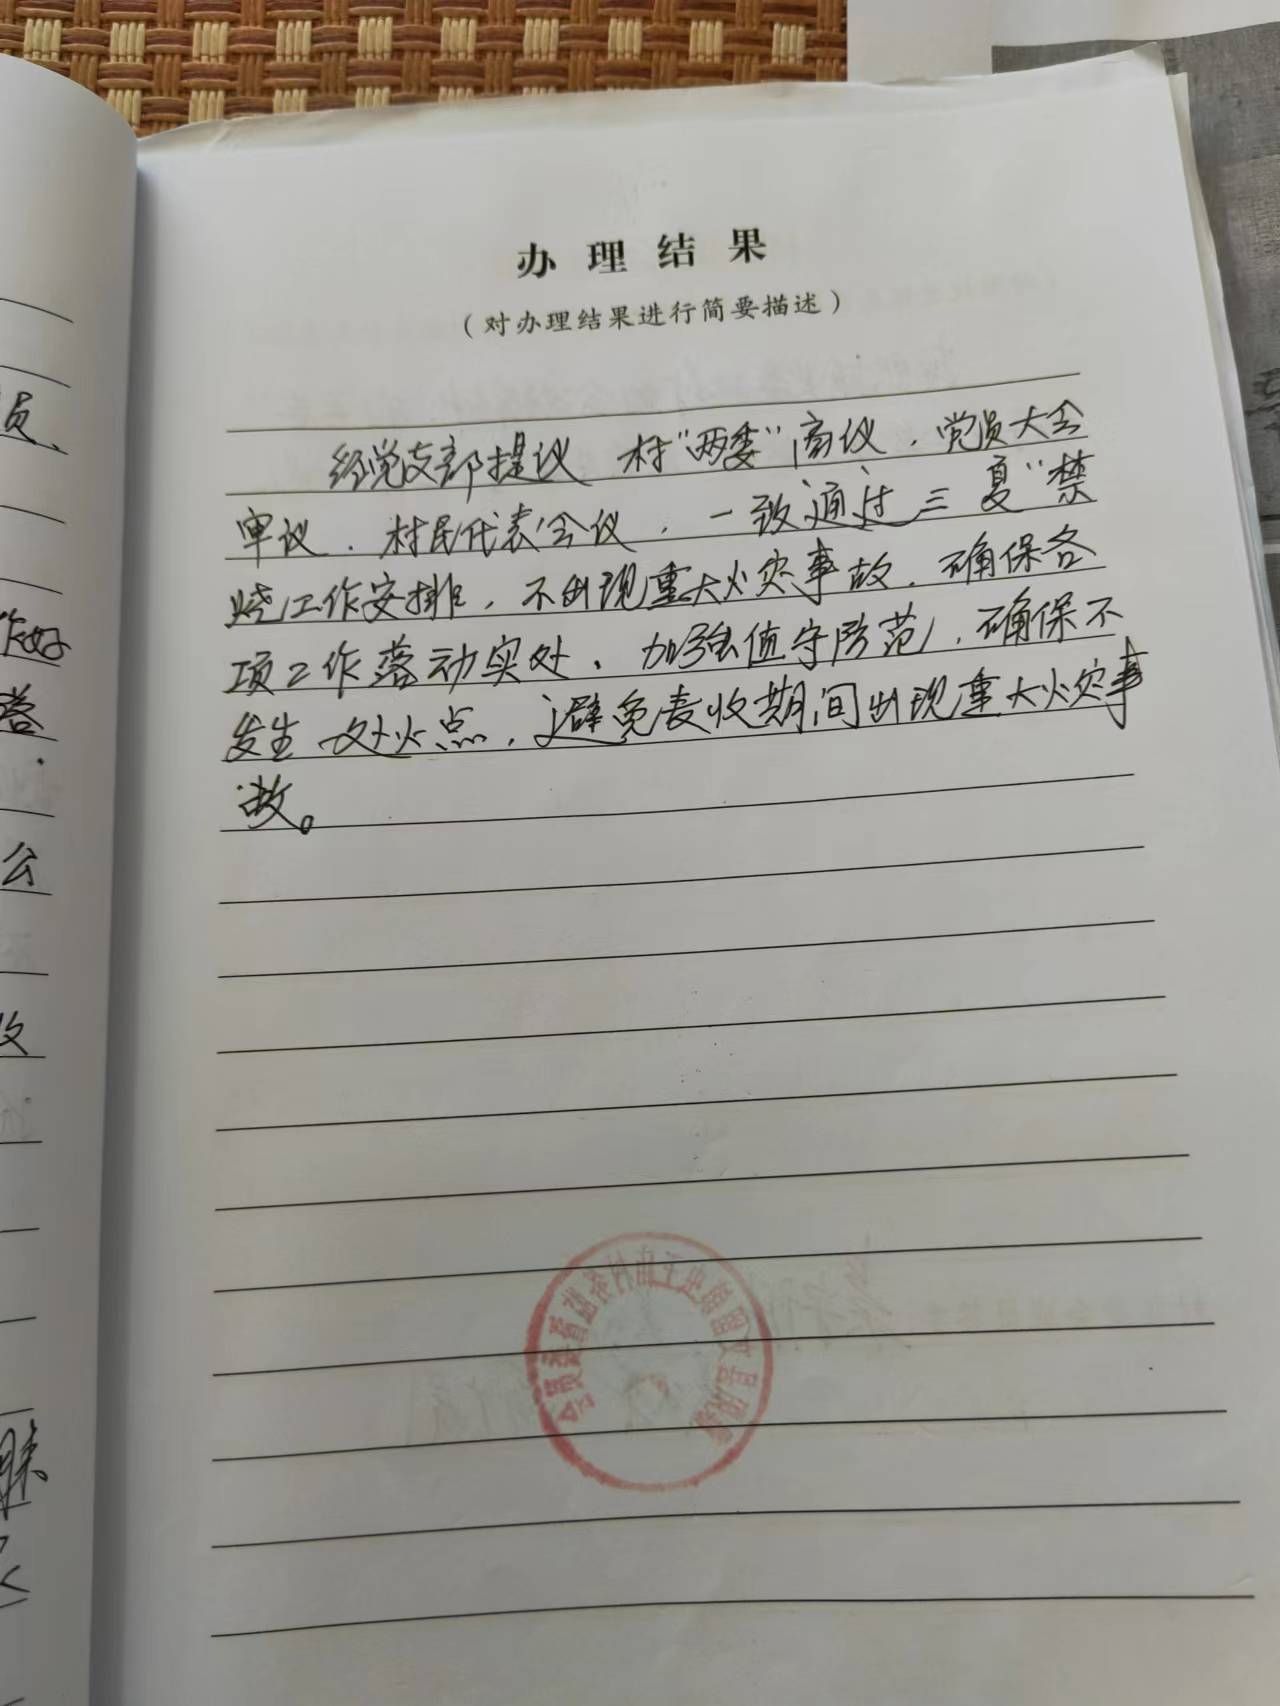 办理结果
（对办理结果进行简要描述）
经党支部提议 村“两委”商议．党员大会
审议．村民代表会议，一致通过三夏“禁
烧工作安排，不出现重大火灾事故．确保各
项工作落动实处、加强值守防范，确保不
发生一处火点，避免麦收期间出现重大火灾事
故。
员、
作好
公